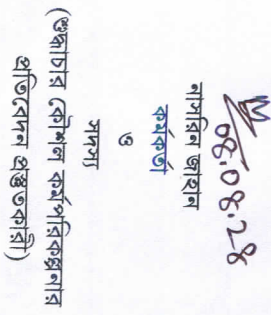 ০৪.০৪.২৪
নাসরিন জাহান
কর্মকর্তা
ও
সদস্য
(শুদ্ধাচার কৌশল কর্মপরিকল্পনার
প্রতিবেদন প্রস্তুতকারী)